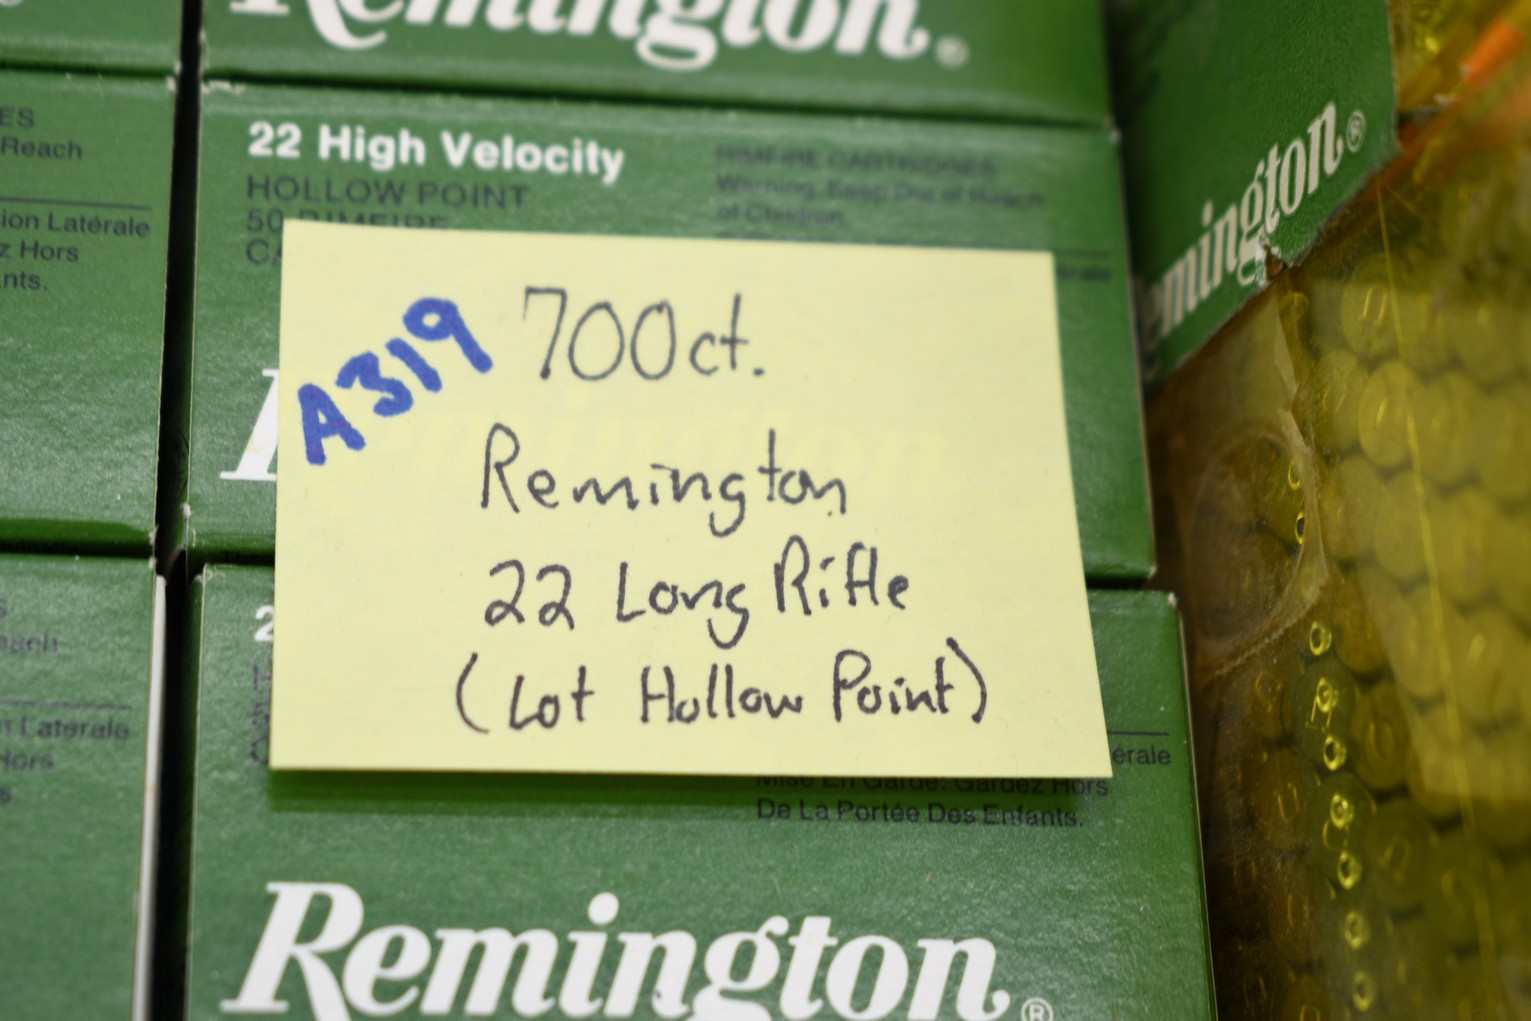 Remington®
ES
Reach
ion Latérale
z Hors
nts.
22 High Velocity
HOLLOW POINT
50 RIMFIRE
RIMFIRE CARTRIDGES
Warning: Keep Out of Reach
of Children.
érale
mington®
A319
700ct.
Remington
22 Long Rifle
(Lot Hollow Point)
each
n Latérale
Hors
s
2
érale
Mise En Garde: Gardez Hors
De La Portée Des Enfants.
Remington®